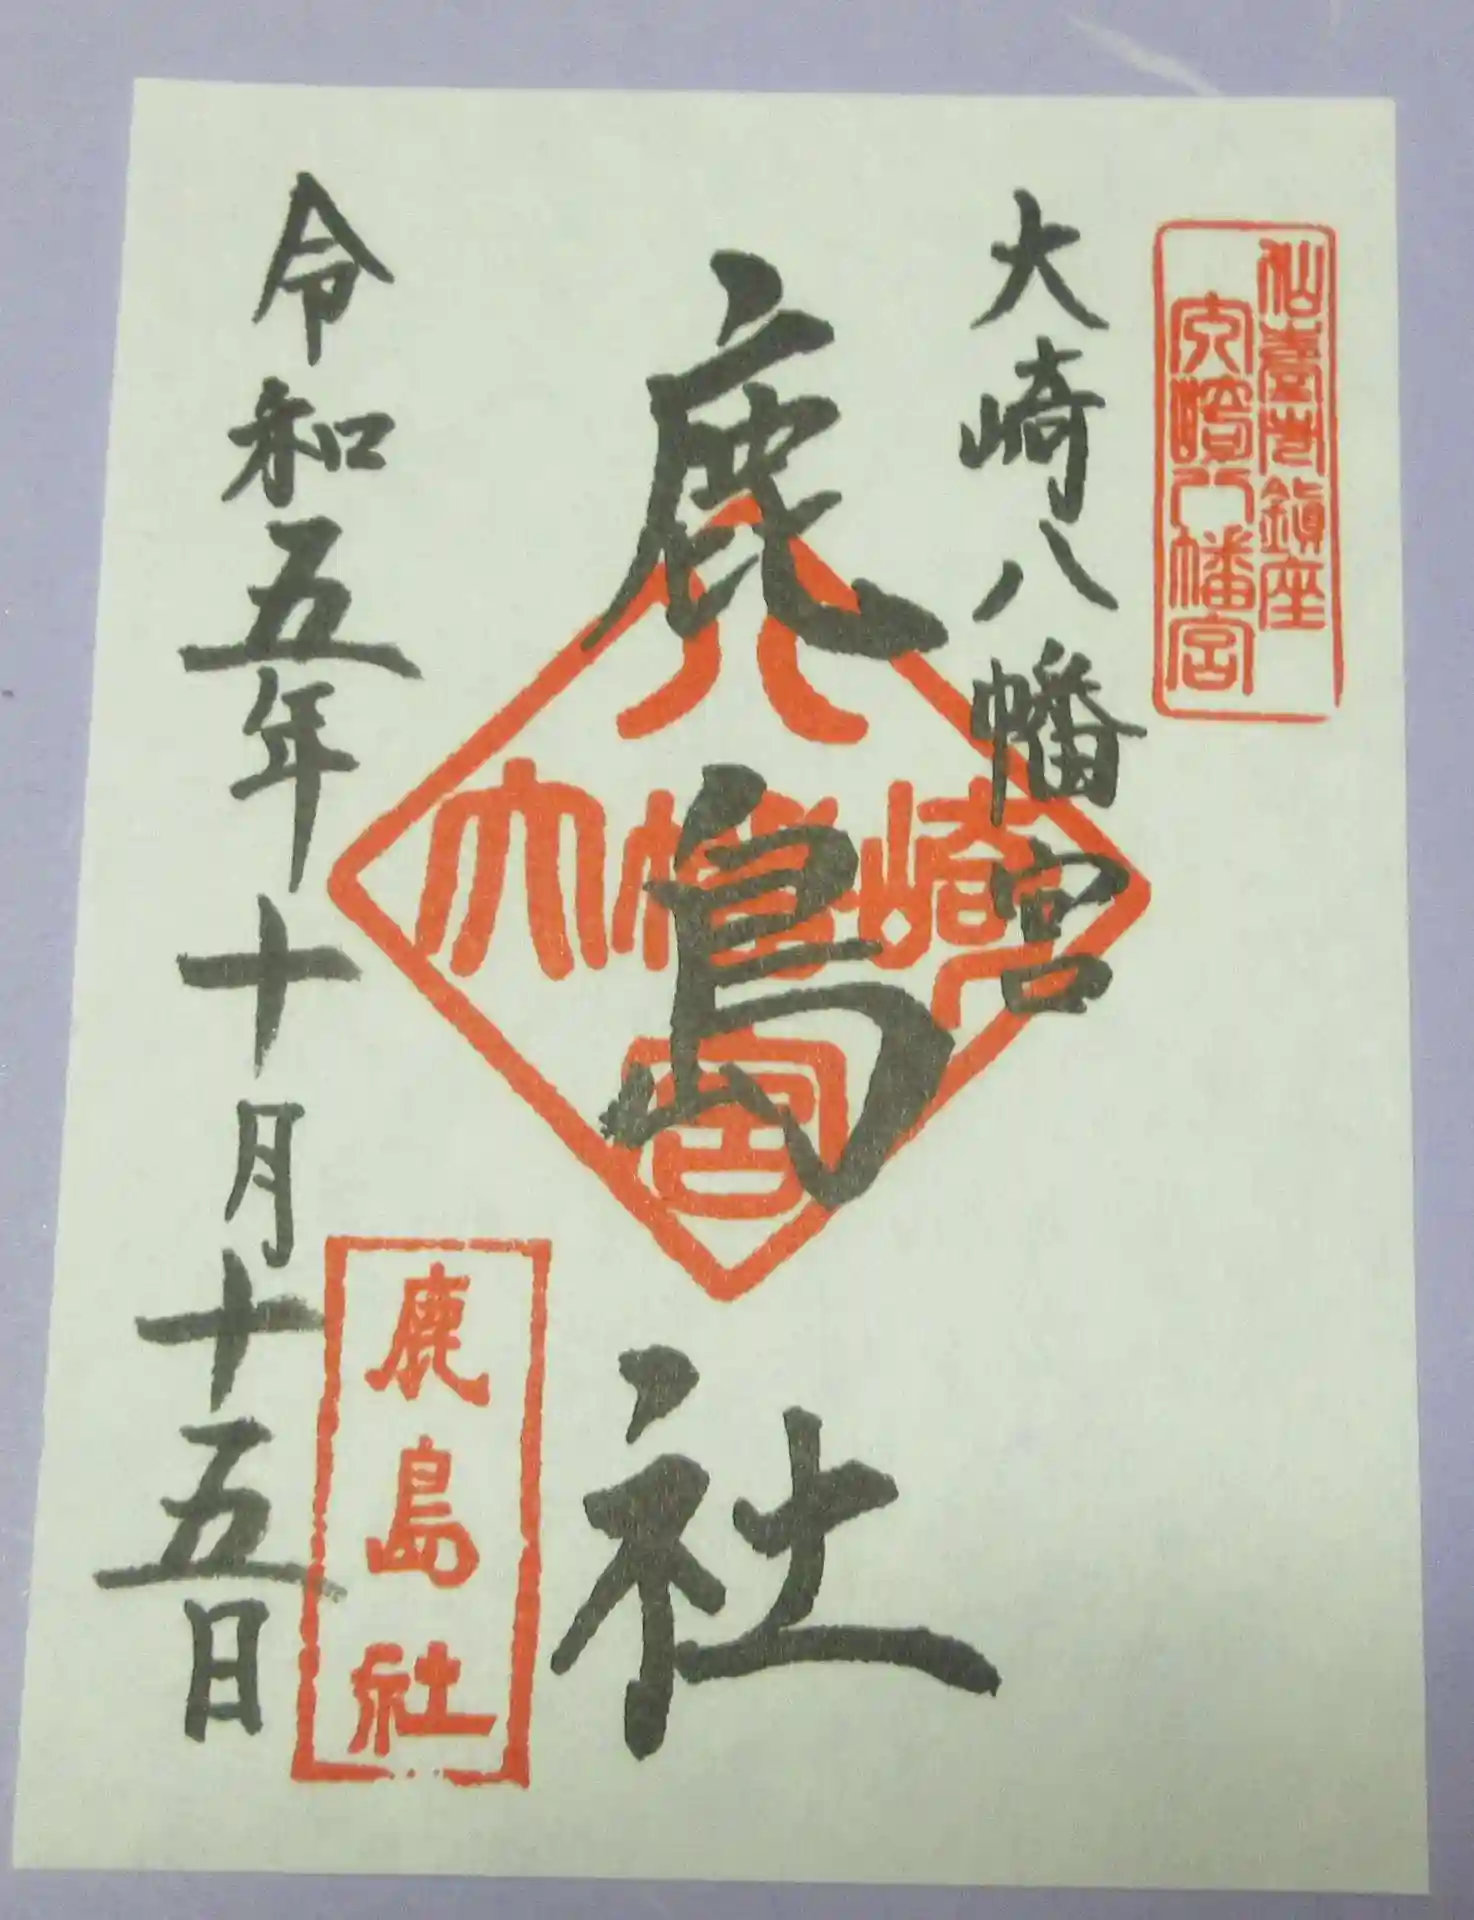 仙臺市鎮座
大崎八幡宮
大崎八幡宮
鹿島社
八
大幡崎
宮
鹿島社
令和五年十月十五日